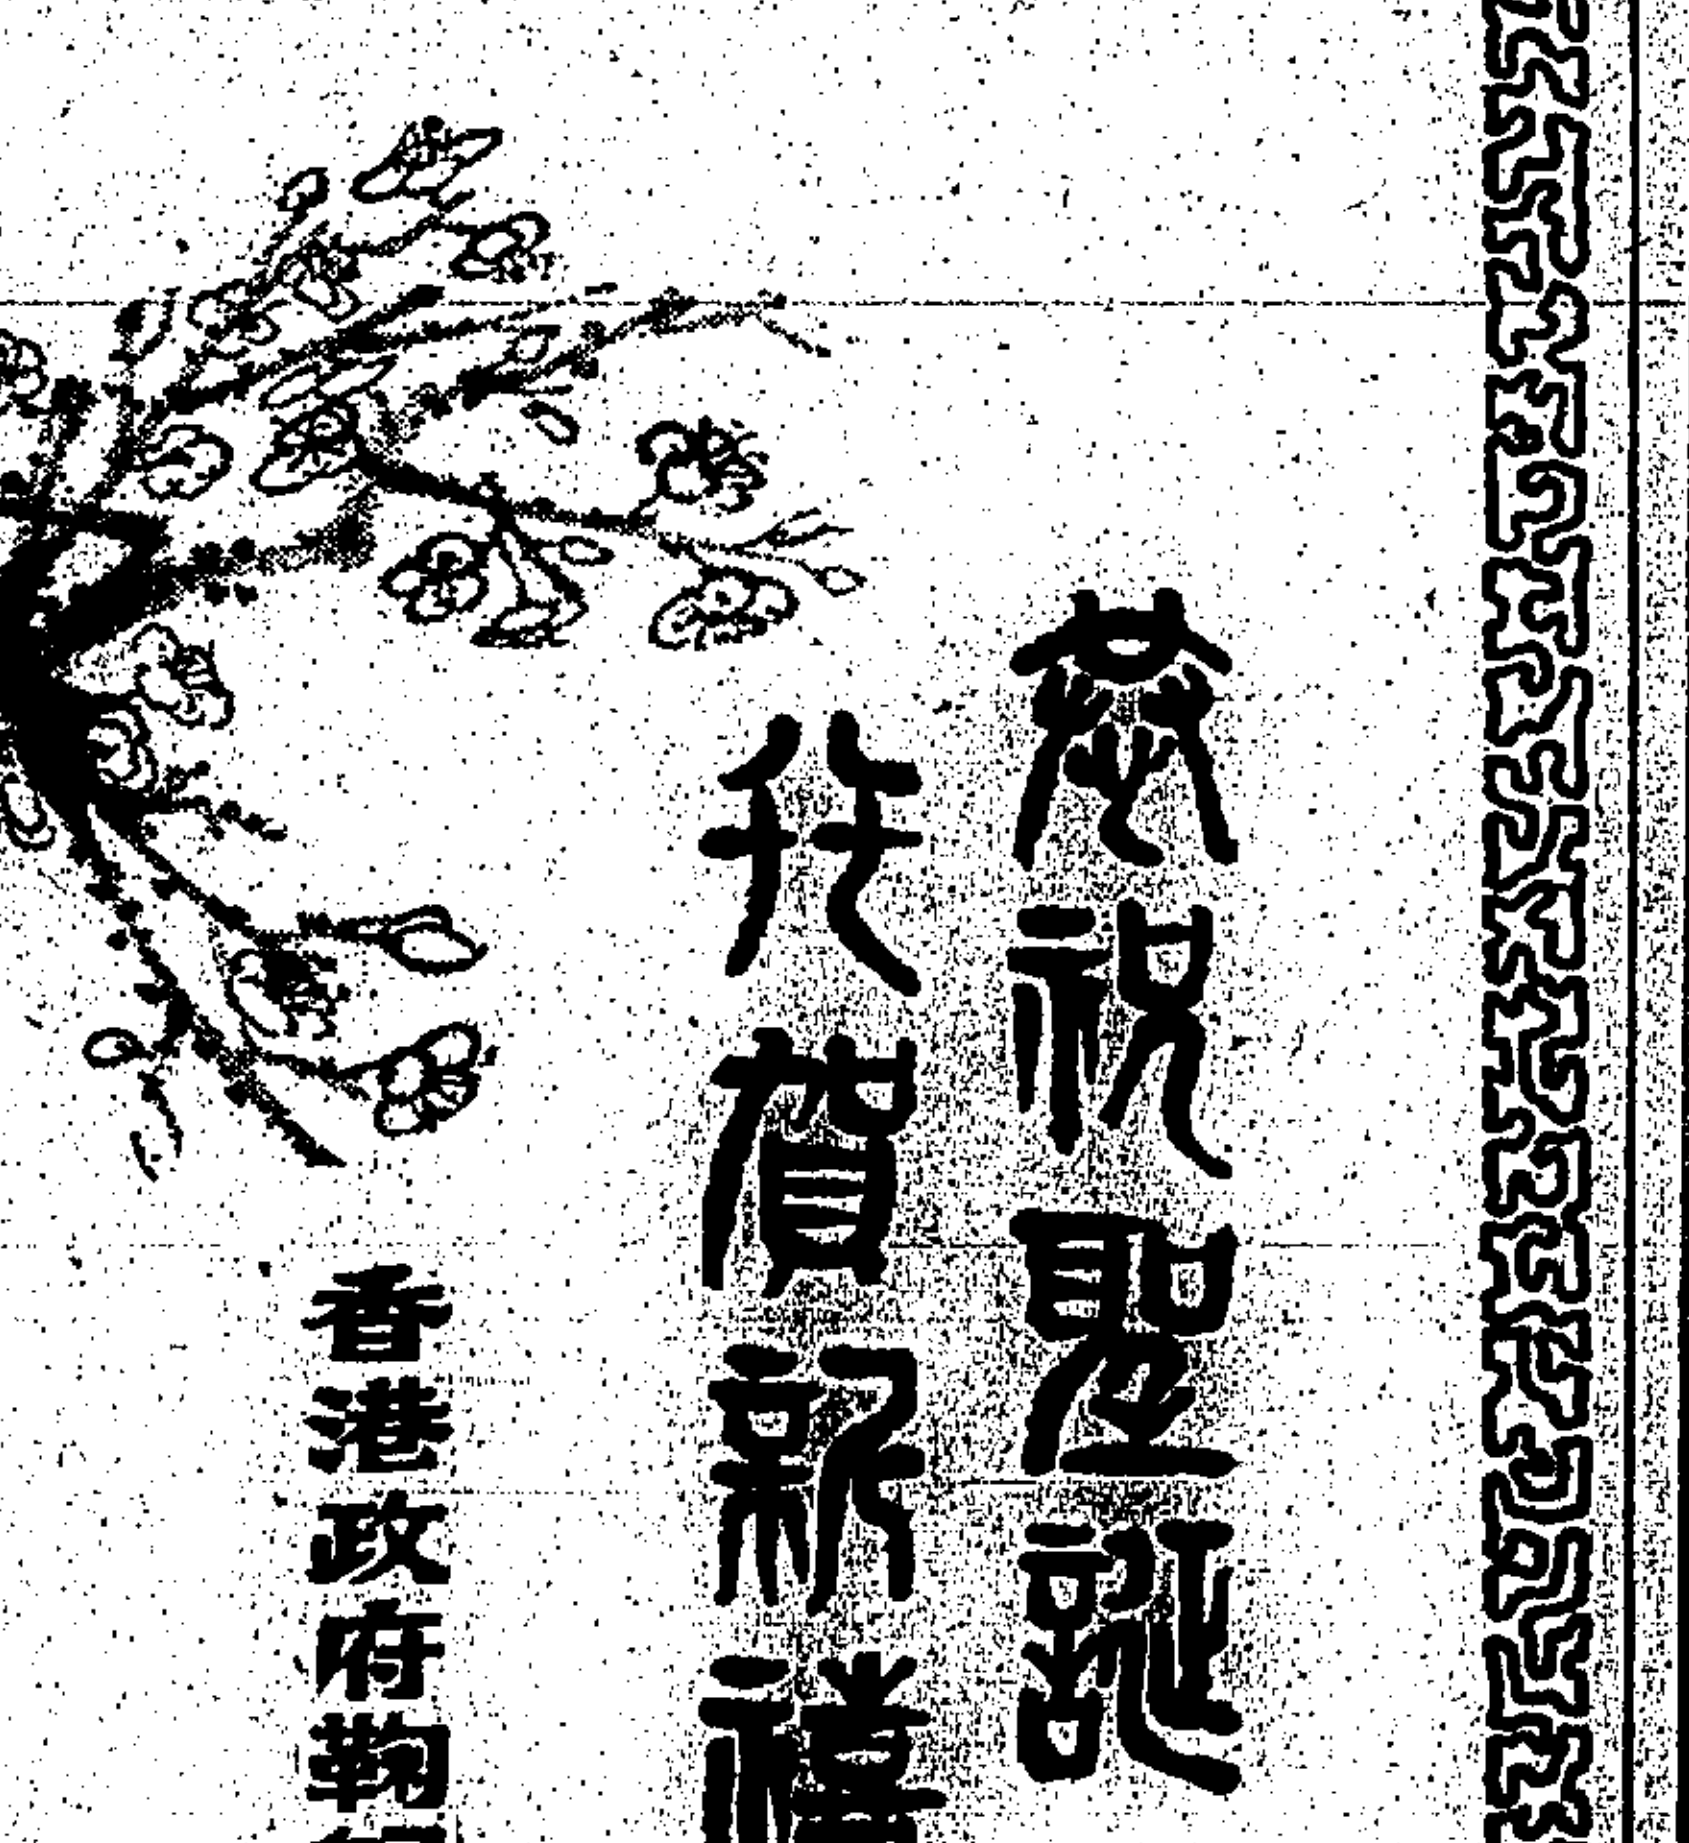 恭祝聖誕
并賀新禧
香港政府鞠